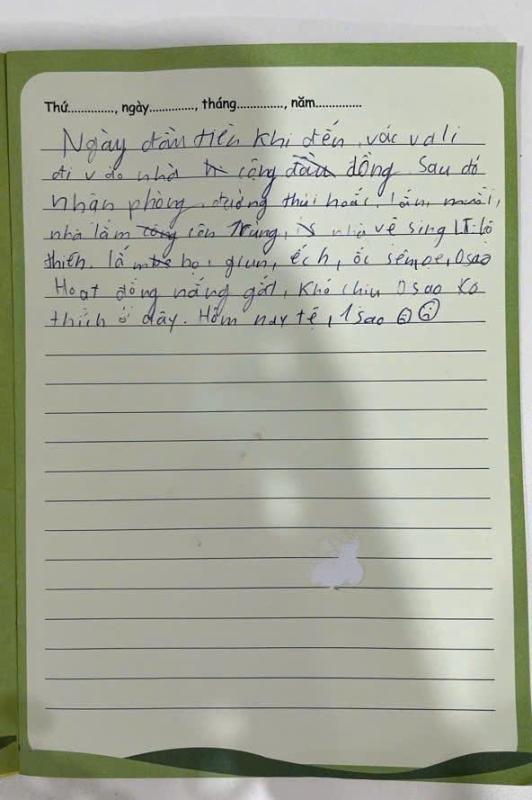 Thứ............., ngày............., tháng............., năm.............
Ngày đầu tiên khi đến, vác vali
đi v đo nhà cộng đồng Sau đó
nhận phòng, đường thúi hoắc, lắm muỗi,
nhà lắm côn Trùng, nhà vệ sing
thiên. lắm bọ, giun, ếch, ốc sên, 0 sao
Hoạt động nắng gắt, Khó chịu 0 sao Ko
thích ở đây. Hôm nay tệ, 1 sao